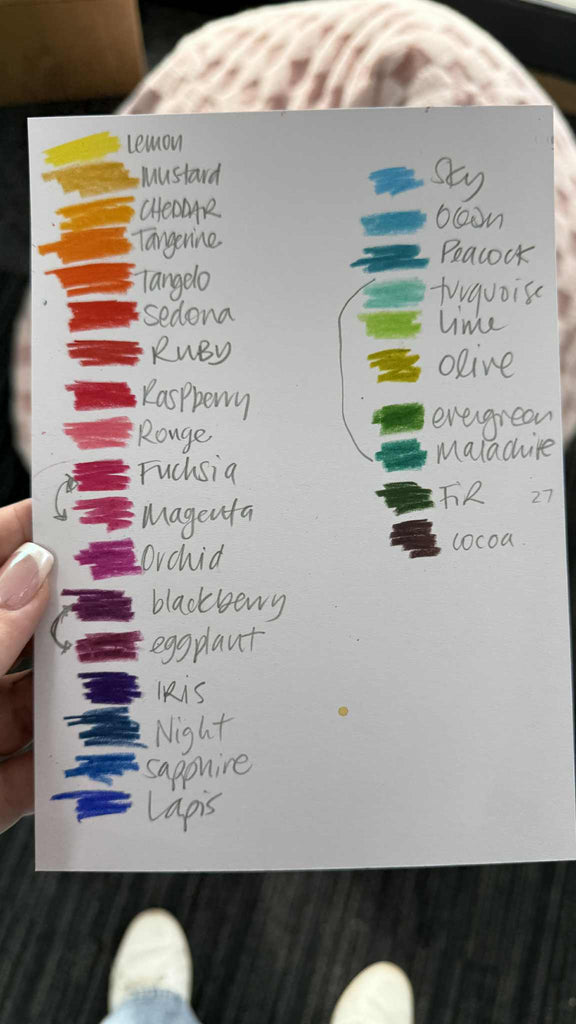 Lemon
Mustard
CHEDDAR
Tangerine
Tangelo
Sedona
RUBY
Raspberry
Rouge
Fuchsia
Magenta
Orchid
blackberry
eggplant
IRIS
Night
sapphire
Lapis
Sky
Ocean
Peacock
turquoise
Lime
Olive
evergreen
Malachite
FiR 27
cocoa.